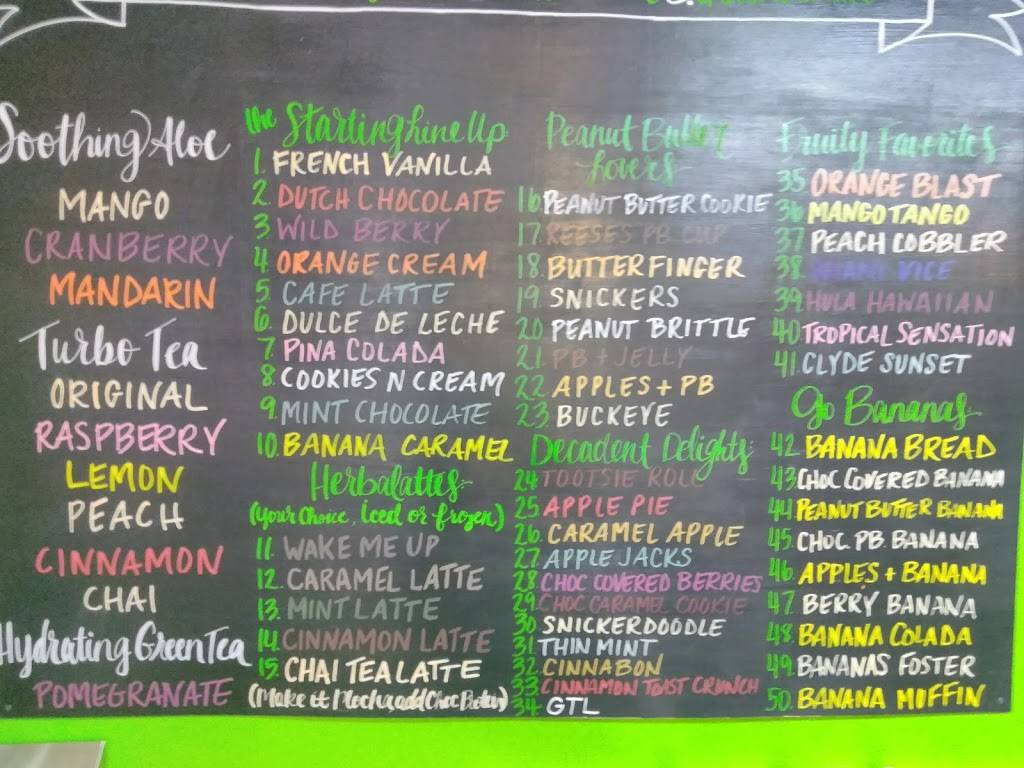 Soothing Aloe
MANGO
CRANBERRY
MANDARIN
Turbo Tea
ORIGINAL
RASPBERRY
LEMON
PEACH
CINNAMON
CHAI
Hydrating Green Tea
POMEGRANATE
the Starting Line Up
1. FRENCH VANILLA
2. DUTCH CHOCOLATE
3. WILD BERRY
4. ORANGE CREAM
5. CAFE LATTE
6. DULCE DE LECHE
7. PINA COLADA
8. COOKIES N CREAM
9. MINT CHOCOLATE
10. BANANA CARAMEL
Herbalattes
(Your Choice, Iced or frozen)
11. WAKE ME UP
12. CARAMEL LATTE
13. MINT LATTE
14. CINNAMON LATTE
15. CHAI TEA LATTE
(Make it Mocha, add Choc Protein)
Peanut Butter
Lovers
16. PEANUT BUTTER COOKIE
17. REESES PB CUP
18. BUTTERFINGER
19. SNICKERS
20. PEANUT BRITTLE
21. PB + JELLY
22. APPLES + PB
23. BUCKEYE
Decadent Delights
24. TOOTSIE ROLL
25. APPLE PIE
26. CARAMEL APPLE
27. APPLE JACKS
28. CHOC COVERED BERRIES
29. CHOC CARAMEL COOKIE
30. SNICKERDOODLE
31. THIN MINT
32. CINNABON
33. CINNAMON TOAST CRUNCH
34. GTL
Fruity Favorites
35. ORANGE BLAST
36. MANGO TANGO
37. PEACH COBBLER
38. MIAMI VICE
39. HULA HAWAIIAN
40. TROPICAL SENSATION
41. CLYDE SUNSET
Go Bananas
42. BANANA BREAD
43. CHOC COVERED BANANA
44. PEANUT BUTTER BANANA
45. CHOC PB BANANA
46. APPLES + BANANA
47. BERRY BANANA
48. BANANA COLADA
49. BANANAS FOSTER
50. BANANA MUFFIN